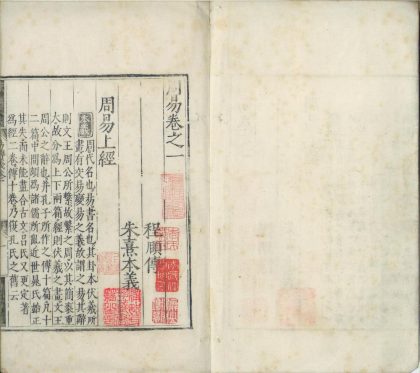 周易卷之一
程頤傳
朱熹本義
周易上經
本義 周代名也易書名也其卦本伏羲所
畫有交易變易之義故謂之易其辭
則文王周公所繫故繫之周以其簡袠重
大故分爲上下兩篇經則伏羲之畫文王
周公之辭也并孔子所作之傳十篇凡十
二篇中間頗爲諸儒所亂近世晁氏始正
其失而未能盡合古文吕氏又更定著
爲經二卷傳十卷乃復孔氏之舊云